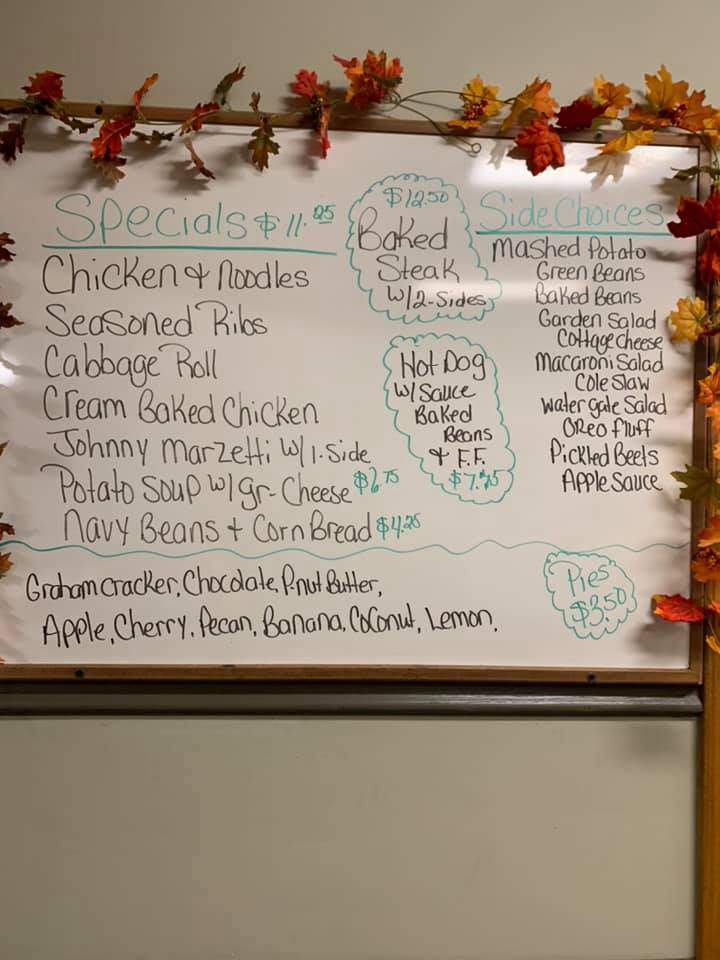 Specials $11.25
Chicken & Noodles
Seasoned Ribs
Cabbage Roll
Cream Baked Chicken
Johnny Marzetti W/1-Side
Potato Soup w/gr-Cheese $6.75
Navy Beans + Corn Bread $4.25
$12.50
Baked
Steak
W/2-Sides
Hot Dog
W/Sauce
Baked
Beans
& F.F.
$7.75
Side Choices
Mashed Potato
Green Beans
Baked Beans
Garden Salad
Cottage Cheese
Macaroni Salad
Cole Slaw
Water gate Salad
Oreo Fluff
Pickled Beets
Apple Sauce
Graham cracker, Chocolate, P-nut Butter,
Apple, Cherry, Pecan, Banana, Coconut, Lemon,
Pies
$3.50